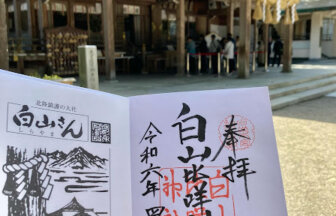 北陸鎮護の大社
白山さん
しらやま
奉拝
白山比咩
令和六年